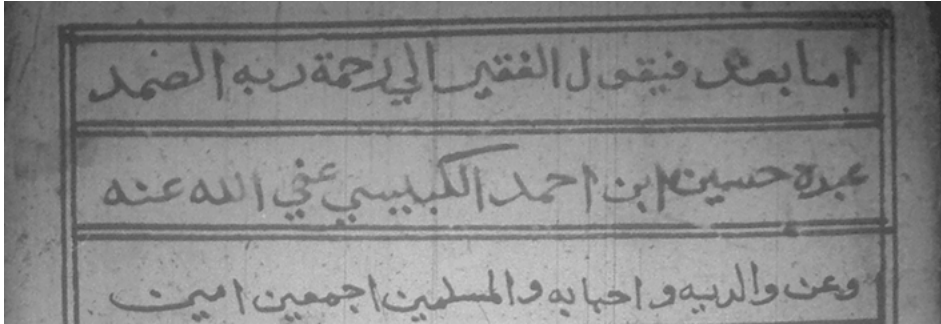 اما بعد فيقول الفقير الي رحمة ربه الصمد
عبده حسين ابن احمد الكبيسي عفي الله عنه
وعن والديه و احبابه والمسلمين اجمعين امين